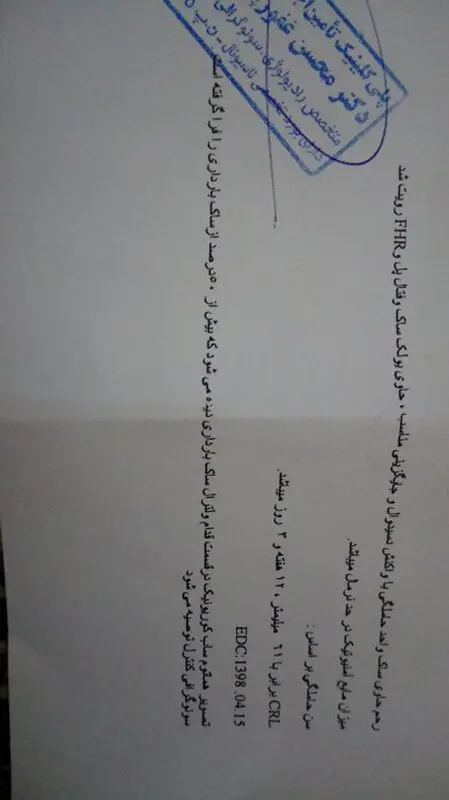 رحم حاوی ساک واحد حاملگی با واکنش دسیدوال و جایگزینی مناسب ، حاوی یولک ساک وفتال پل و FHR رویت شد
میزان مایع آمنیوتیک در حد نرمال میباشد.
سن حاملگی بر اساس :
CRL برابر با ۶۱ میلیمتر ، ۱۲ هفته و ۳ روز میباشد.
EDC:1398 .04.15
تصویر هماتوم ساب کوریونیک در قسمت قدام ولترال ساک بارداری دیده می شود که بیش از ۵۰درصد از ساک بارداری را فرا گرفته است
سونوگرافی کنترل توصیه می شود
کلینیک تأمین
دکتر محسن
متخصص رادیولوژی، سونوگرافی